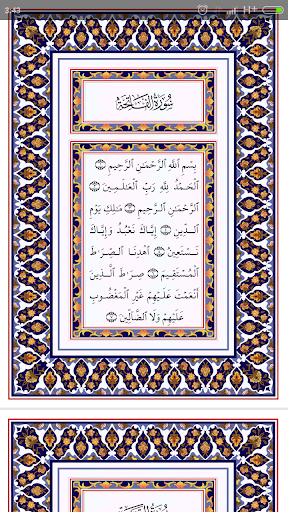 3:43
H+
سُورَةُ الفَاتِحَةِ
بِسْمِ ٱللَّهِ ٱلرَّحْمَٰنِ ٱلرَّحِيمِ ۝
ٱلْحَمْدُ لِلَّهِ رَبِّ ٱلْعَٰلَمِينَ ۝
ٱلرَّحْمَٰنِ ٱلرَّحِيمِ ۝ مَٰلِكِ يَوْمِ
ٱلدِّينِ ۝ إِيَّاكَ نَعْبُدُ وَإِيَّاكَ
نَسْتَعِينُ ۝ ٱهْدِنَا ٱلصِّرَٰطَ
ٱلْمُسْتَقِيمَ ۝ صِرَٰطَ ٱلَّذِينَ
أَنْعَمْتَ عَلَيْهِمْ غَيْرِ ٱلْمَغْضُوبِ
عَلَيْهِمْ وَلَا ٱلضَّآلِّينَ ۝